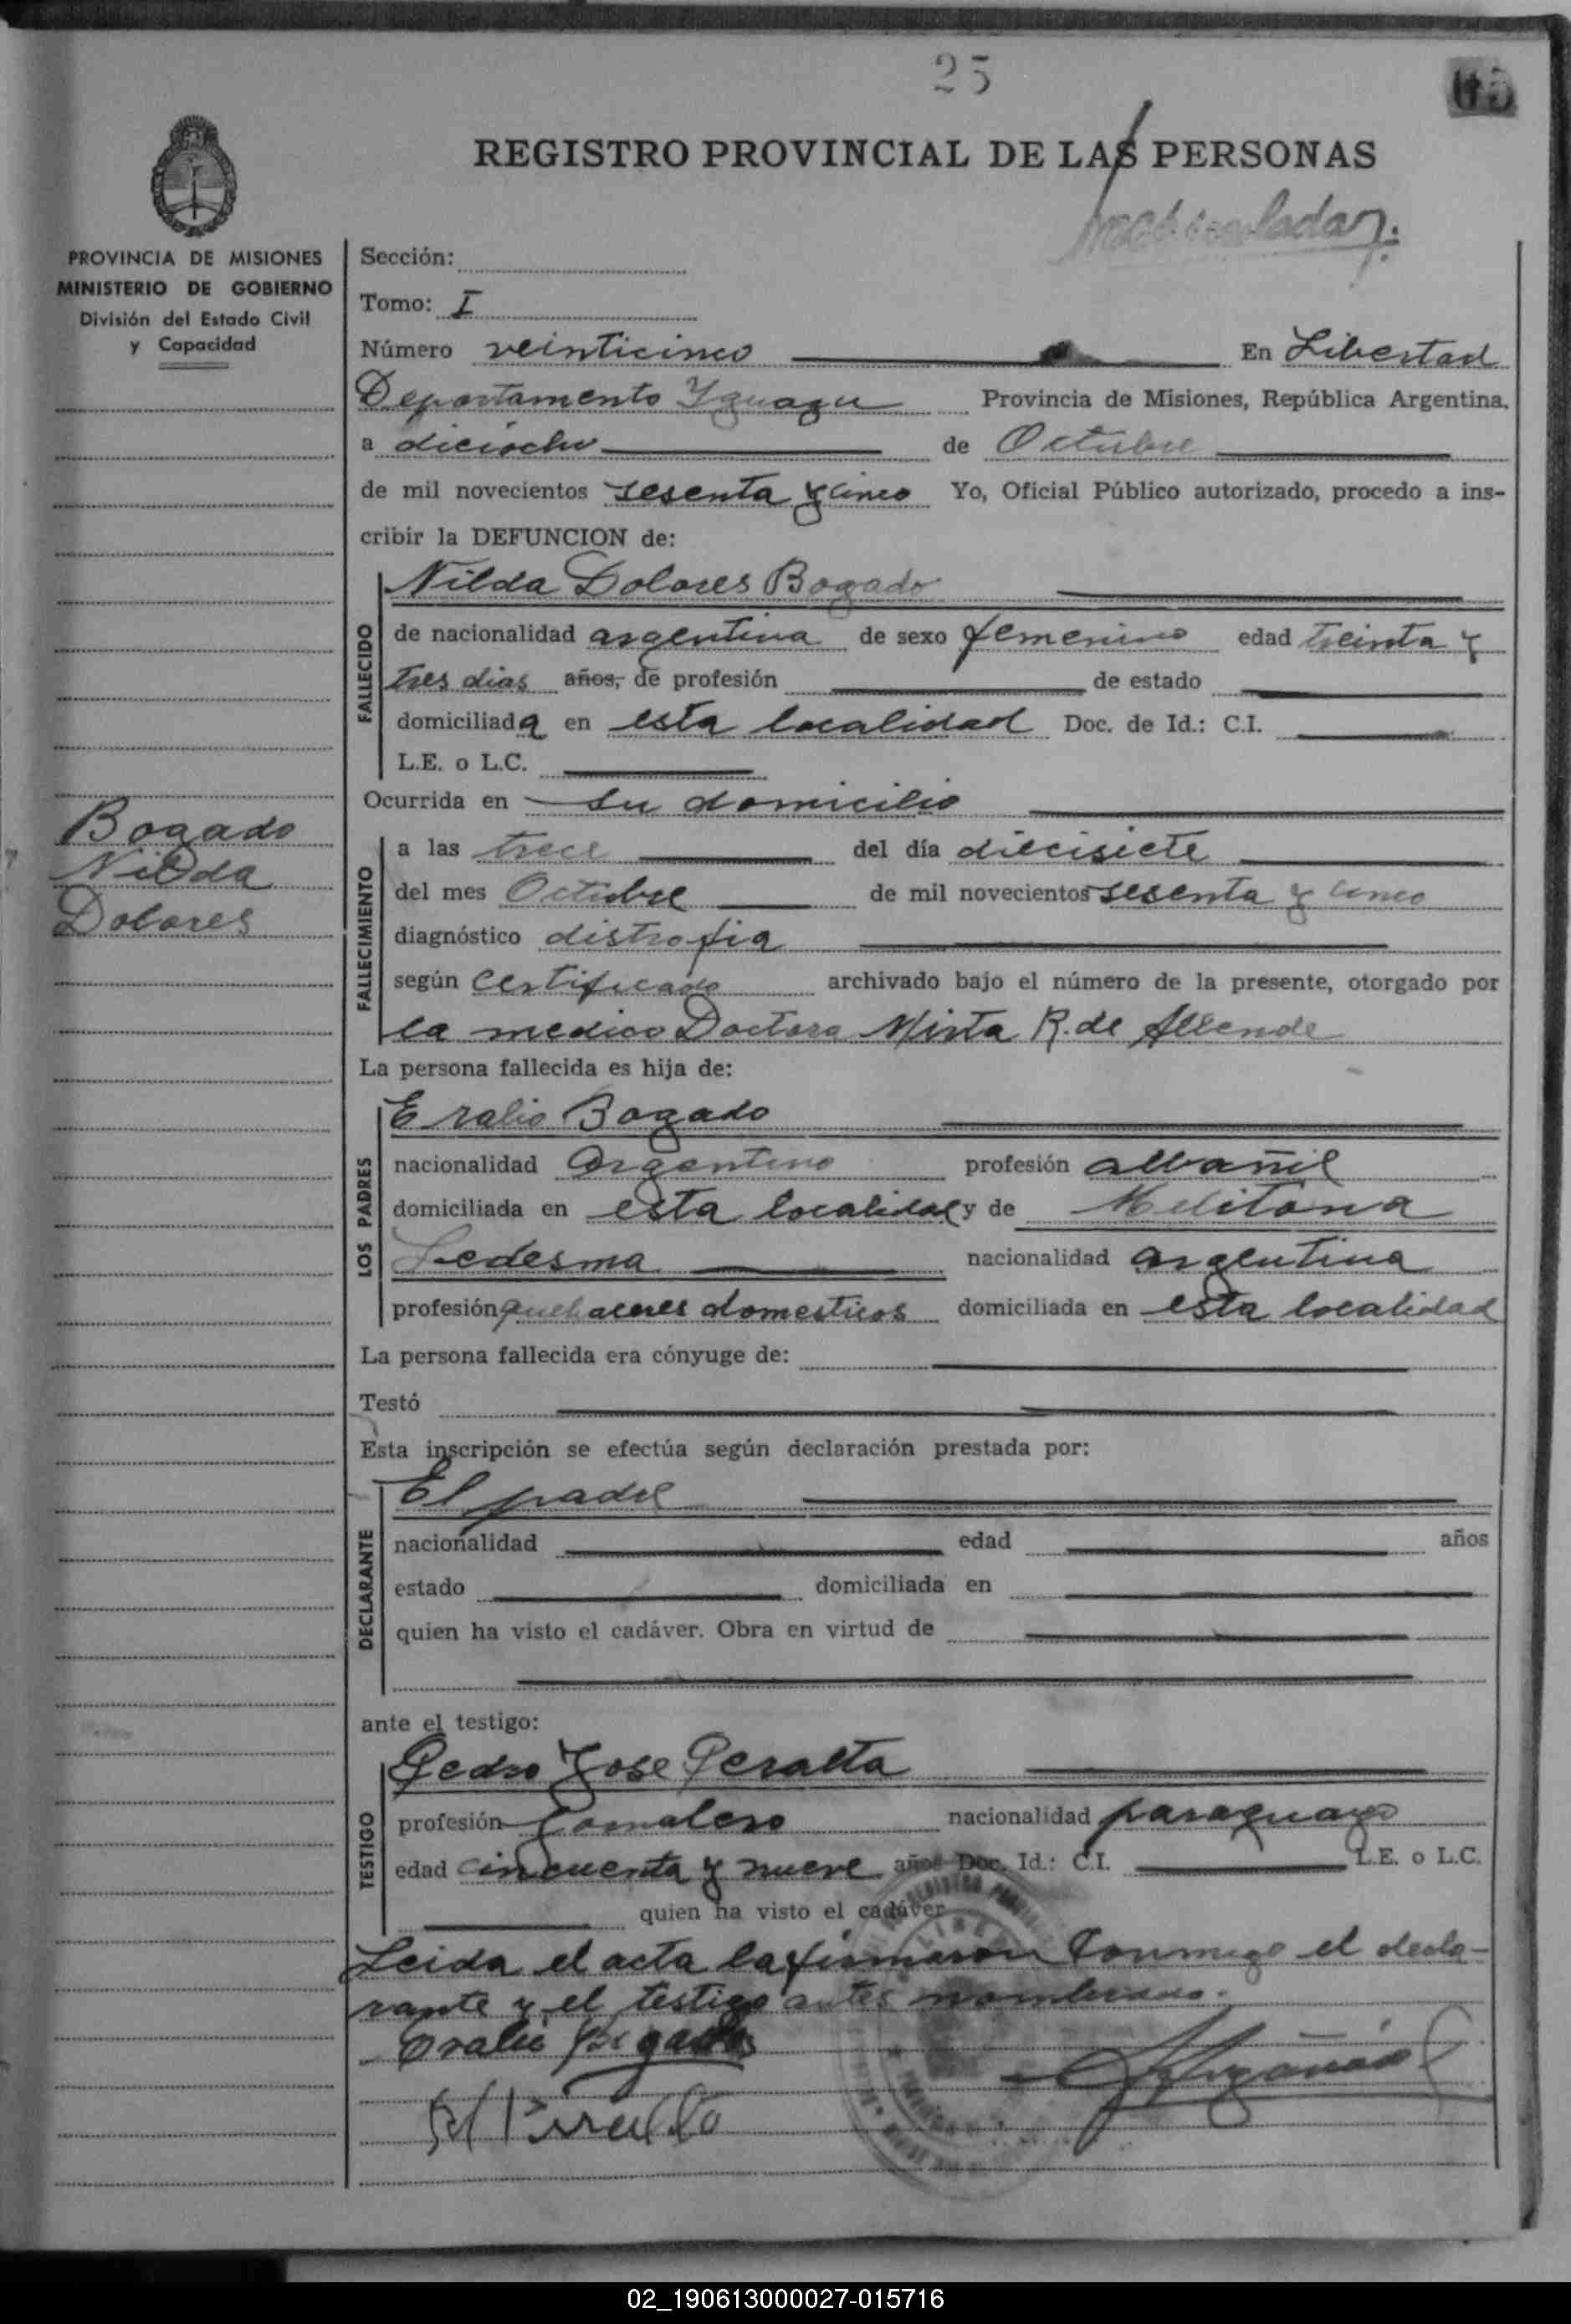 25
65
REGISTRO PROVINCIAL DE LAS PERSONAS
PROVINCIA DE MISIONES
MINISTERIO DE GOBIERNO
División del Estado Civil
y Capacidad
Bogado
Nilda
Dolores
Sección:
Tomo: I
Número veinticinco En Libertad
Departamento Yguazu Provincia de Misiones, República Argentina,
a dieciocho de Octubre
de mil novecientos sesenta y cinco Yo, Oficial Público autorizado, procedo a ins-
cribir la DEFUNCION de:
FALLECIDO
Nilda Dolores Bogado
de nacionalidad argentina de sexo femenino edad treinta y
tres dias años, de profesión de estado
domiciliada en esta localidad Doc. de Id.: C.I.
L.E. o L.C.
Ocurrida en su domicilio
FALLECIMIENTO
a las trece del día diecisiete
del mes Octubre de mil novecientos sesenta y cinco
diagnóstico distrofia
según certificado archivado bajo el número de la presente, otorgado por
la medico Doctora Mirta R. de Allende
La persona fallecida es hija de:
LOS PADRES
Eralio Bogado
nacionalidad argentino profesión albañil
domiciliada en esta localidad y de Melitona
Ledesma nacionalidad argentina
profesión quehaceres domesticos domiciliada en esta localidad
La persona fallecida era cónyuge de:
Testó
Esta inscripción se efectúa según declaración prestada por:
DECLARANTE
El padre
nacionalidad edad años
estado domiciliada en
quien ha visto el cadáver. Obra en virtud de
ante el testigo:
TESTIGO
Pedro Jose Peralta
profesión Jornalero nacionalidad paraguayo
edad cincuenta y nueve años Doc. Id.: C.I. L.E. o L.C.
quien ha visto el cadáver
Leida el acta la firmaron conmigo el decla-
rante y el testigo antes nombrado.
Eralio Bogado
02_190613000027-015716